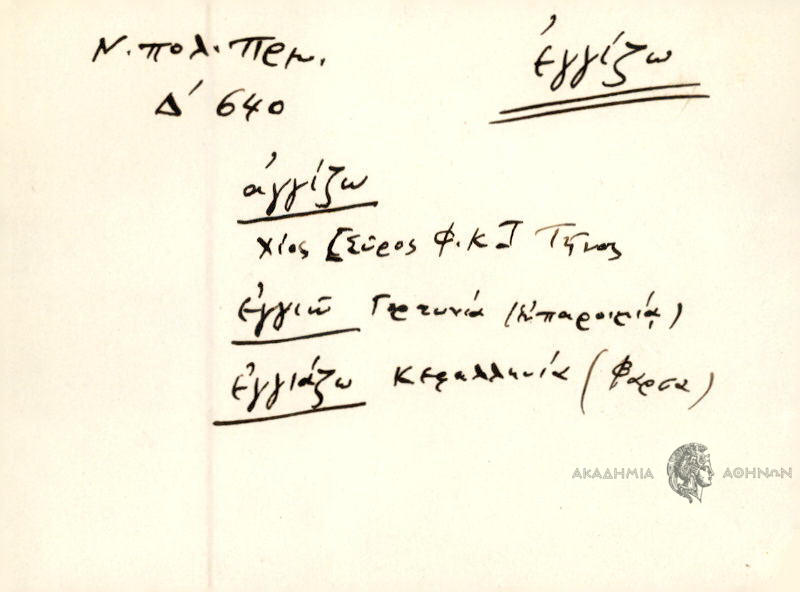 Ν. πολ. Πρμ.
Δ' 640
ἐγγίζω
ἀγγίζω
Χίος [Σύρος Φ.Κ.] Τῆνος
ἐγγιῶ Γορτυνία (ἐν παροιμίᾳ)
ἐγγιάζω Κεφαλληνία (Φάρσα)
ΑΚΑΔΗΜΙΑ ΑΘΗΝΩΝ